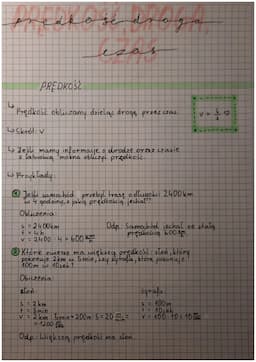 PRĘDKOŚĆ, DROGA,
CZAS
prędkość droga
czas
PRĘDKOŚĆ
↳ Prędkość obliczamy dzieląc drogę przez czas.
v = s/t
↳ Skrót: V
↳ Jeśli mamy informacje o drodze oraz czasie
z łatwością można obliczyć prędkość.
↳ Przykłady:
① Jeśli samochód przebył trasę o długości 2400km
w 4 godziny, z jaką prędkością jechał?
Obliczenia:
s = 2400km
t = 4h
v = 2400 : 4 = 600 km/h
Odp. Samochód jechał ze stałą
prędkością 600 km/h.
② Które zwierzę ma większą prędkość: słoń, który
pokonuje 2km w 5min, czy żyrafa, która pokonuje
100m w 10sek?
Obliczenia:
słoń
s = 2km
t = 5min
żyrafa
s = 100m
t = 10sek
v = 100 : 10 = 10
Odp. Większą prędkość ma słoń.